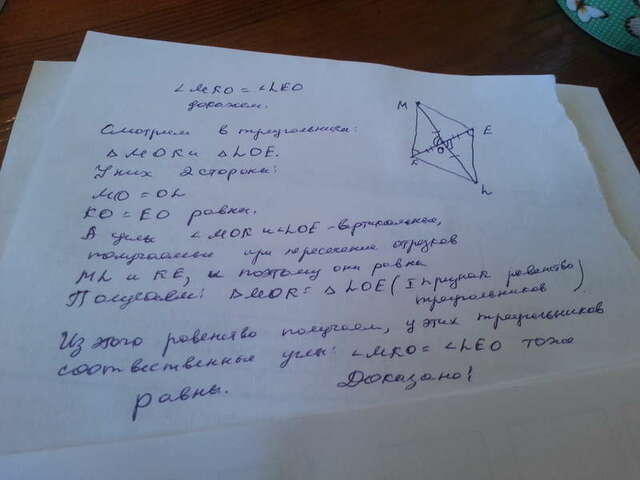 ∠MKO = ∠LEO
докажем.
Смотрим в треугольники:
△MOK и △LOE.
У них 2 стороны:
MO = OL
KO = EO равны.
А углы ∠MOK и ∠LOE - вертикальные,
получаемые при пересечение отрезков
ML и KE, и поэтому они равна
Получаем: △MOK = △LOE (I признак равенство
треугольников)
Из этого равенство получаем, у этих треугольников
соотвественные углы: ∠MKO = ∠LEO тоже
равны.
Доказано!
M
E
O
K
L